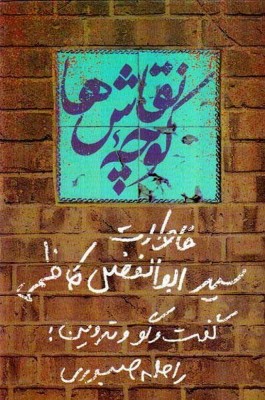 کوچه نقاش‌ها
خاطرات
سید ابوالفضل کاظمی
گفت و گو و تدوین:
راحله صبوری